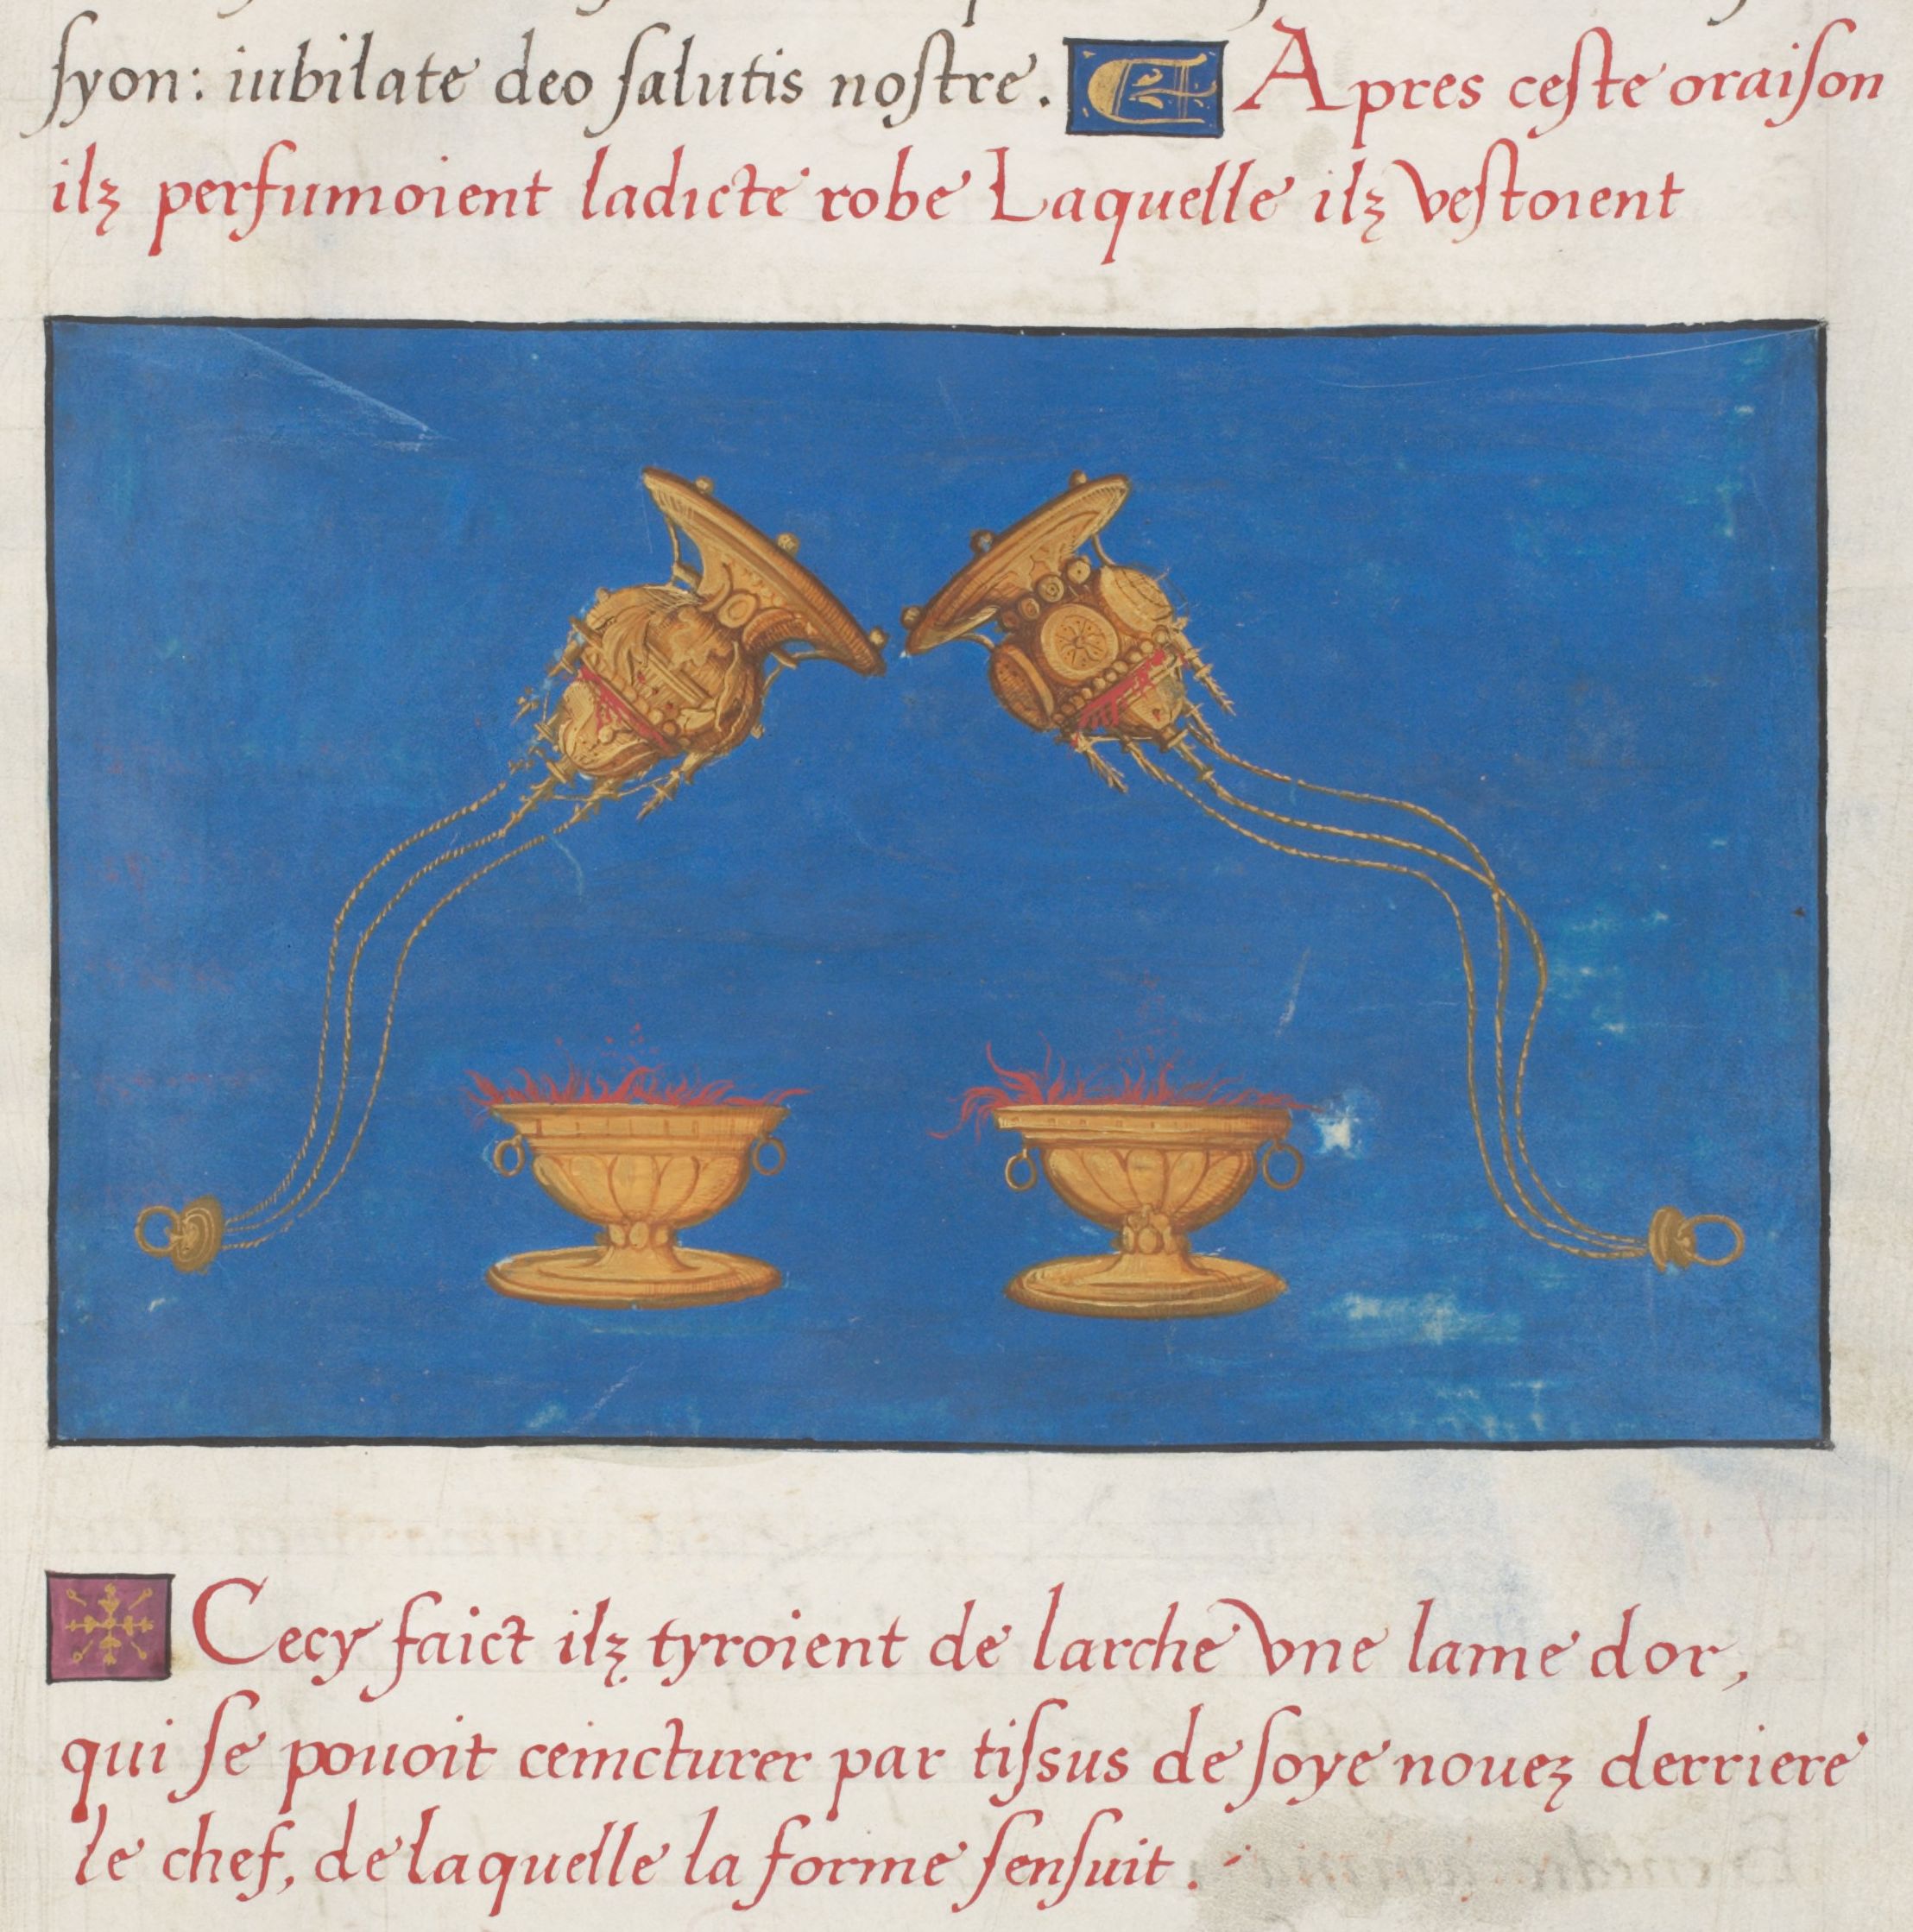 ſyon: iubilate deo ſalutis noſtre. Apres ceſte oraiſon
ilz perfumoient ladicte robe Laquelle ilz veſtoient
Cecy faict ilz tyroient de larche vne lame dor,
qui ſe pouoit ceincturer par tiſsus de ſoye nouez derriere
le chef, de laquelle la forme ſenſuit.